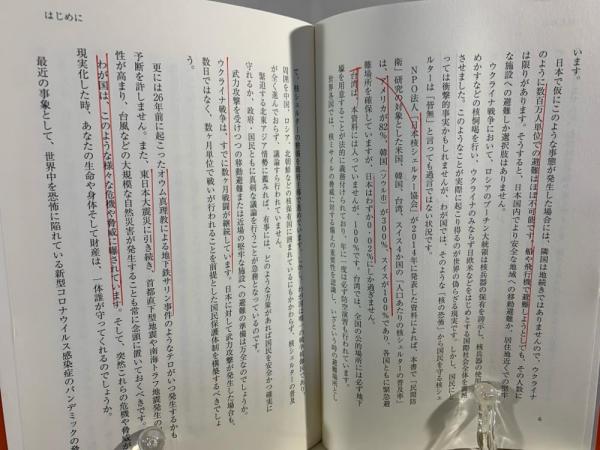 います。
日本で仮にこのような事態が発生した場合には、隣国は地続きではありませんので、ウクライナ
のように数百万人単位での避難はほぼ不可能です。船や飛行機で避難しようとしても、その人数に
は限りがあります。そうすると、日本国内でより安全な地域への移動避難か、居住地近くでの堅牢
な施設への避難しか選択肢はありません。
ウクライナ戦争において、ロシアのプーチン大統領は核兵器の保有を誇示し、核兵器の使用
めかすなどの核恫喝を行い、ウクライナのみならず日欧米などをはじめとする国際社会全体を
させました。このようなことが実際に起こり得るのが世界の偽らざる現実です。しかし、国民に
っては衝撃的事実かもしれませんが、わが国では、そのような「核の恐怖」から国民を守る核シェ
ルターは「皆無」と言っても過言ではない状況です。
NPO法人「日本核シェルター協会」が2014年に発表した資料によれば、本書で「民間防
衛」研究の対象とした米国、韓国、台湾、スイス4か国の「人口あたりの核シェルターの普及率」
は、アメリカが82%、韓国(ソウル市)が300%、スイスが100%であり、各国ともに緊急避
難場所を確保していますが、日本はわずか0・02%にしか過ぎません。
台湾は、本資料には入っていませんが、100%です。台湾では、全国の公的場所には必ず地下
壕を用意することが法的に義務付けられており、年に一度は必ず防空演習も行われています。
世界各国では、核ミサイルの脅威に対する備えの重要性を認識し、いざという時の避難場所とし
6
はじめに
て、核シェルターの
周囲を中国、ロシア、北朝鮮などの核保有国に囲まれているにもかかわらず、核シェルターの普及
が全く進んでおらず、議論すら行われていません。
緊迫する北東アジア情勢に鑑みれば、有事には、どのような方策があれば国民を安全かつ確実に
守れるか、政府・国民ともに真剣な議論を行うことが急務となっているのです。
武力攻撃を受けつつの移動避難または近場の堅牢な施設への避難の準備は万全なのでしょうか。
ウクライナ戦争は、すでに数ヶ月戦闘が継続しています。日本に対して武力攻撃が発生した場合も、
数日ではなく、数ヶ月単位で戦いが行われることを前提とした国民保護体制を構築するべきでしょ
う。
更には26年前に起こったオウム真理教による地下鉄サリン事件のようなテロがいつ発生するかも
予断を許しません。また、東日本大震災に引き続き、首都直下型地震や南海トラフ地震発生の
性が高まり、台風などの大規模な自然災害が発生することも常に念頭に置いておくべきです。
わが国は、このような様々な危機や脅威に曝されています。そして、突然これらの危機や脅威が
現実化した時、あなたの生命や身体そして財産は、一体誰が守ってくれるのでしょうか。
最近の事象として、世界中を恐怖に陥れている新型コロナウイルス感染症のパンデミックの